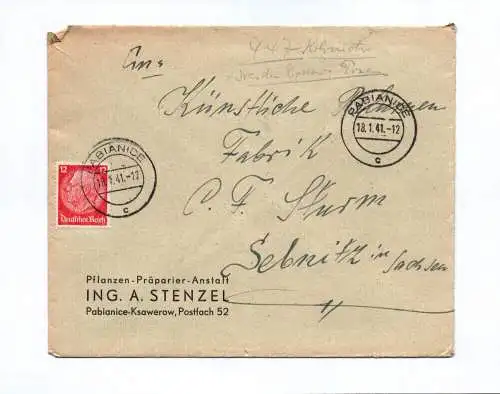 An:
Künstliche Blumen
PABIANICE
18.1.41.-12
c
Fabrik
PABIANICE
18.1.41.-12
c
12 12
Deutsches Reich
C. F. Sturm
Sebnitz in Sachsen
Pflanzen-Präparier-Anstalt
ING. A. STENZEL
Pabianice-Ksawerow, Postfach 52